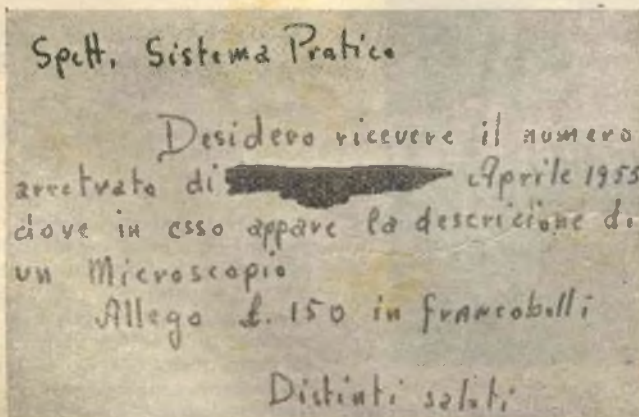 Spett. Sistema Pratico
Desidero ricevere il numero
arretrato di Aprile 1953
dove in esso appare la descrizione di
un Microscopio
Allego £. 150 in francobolli
Distinti saluti